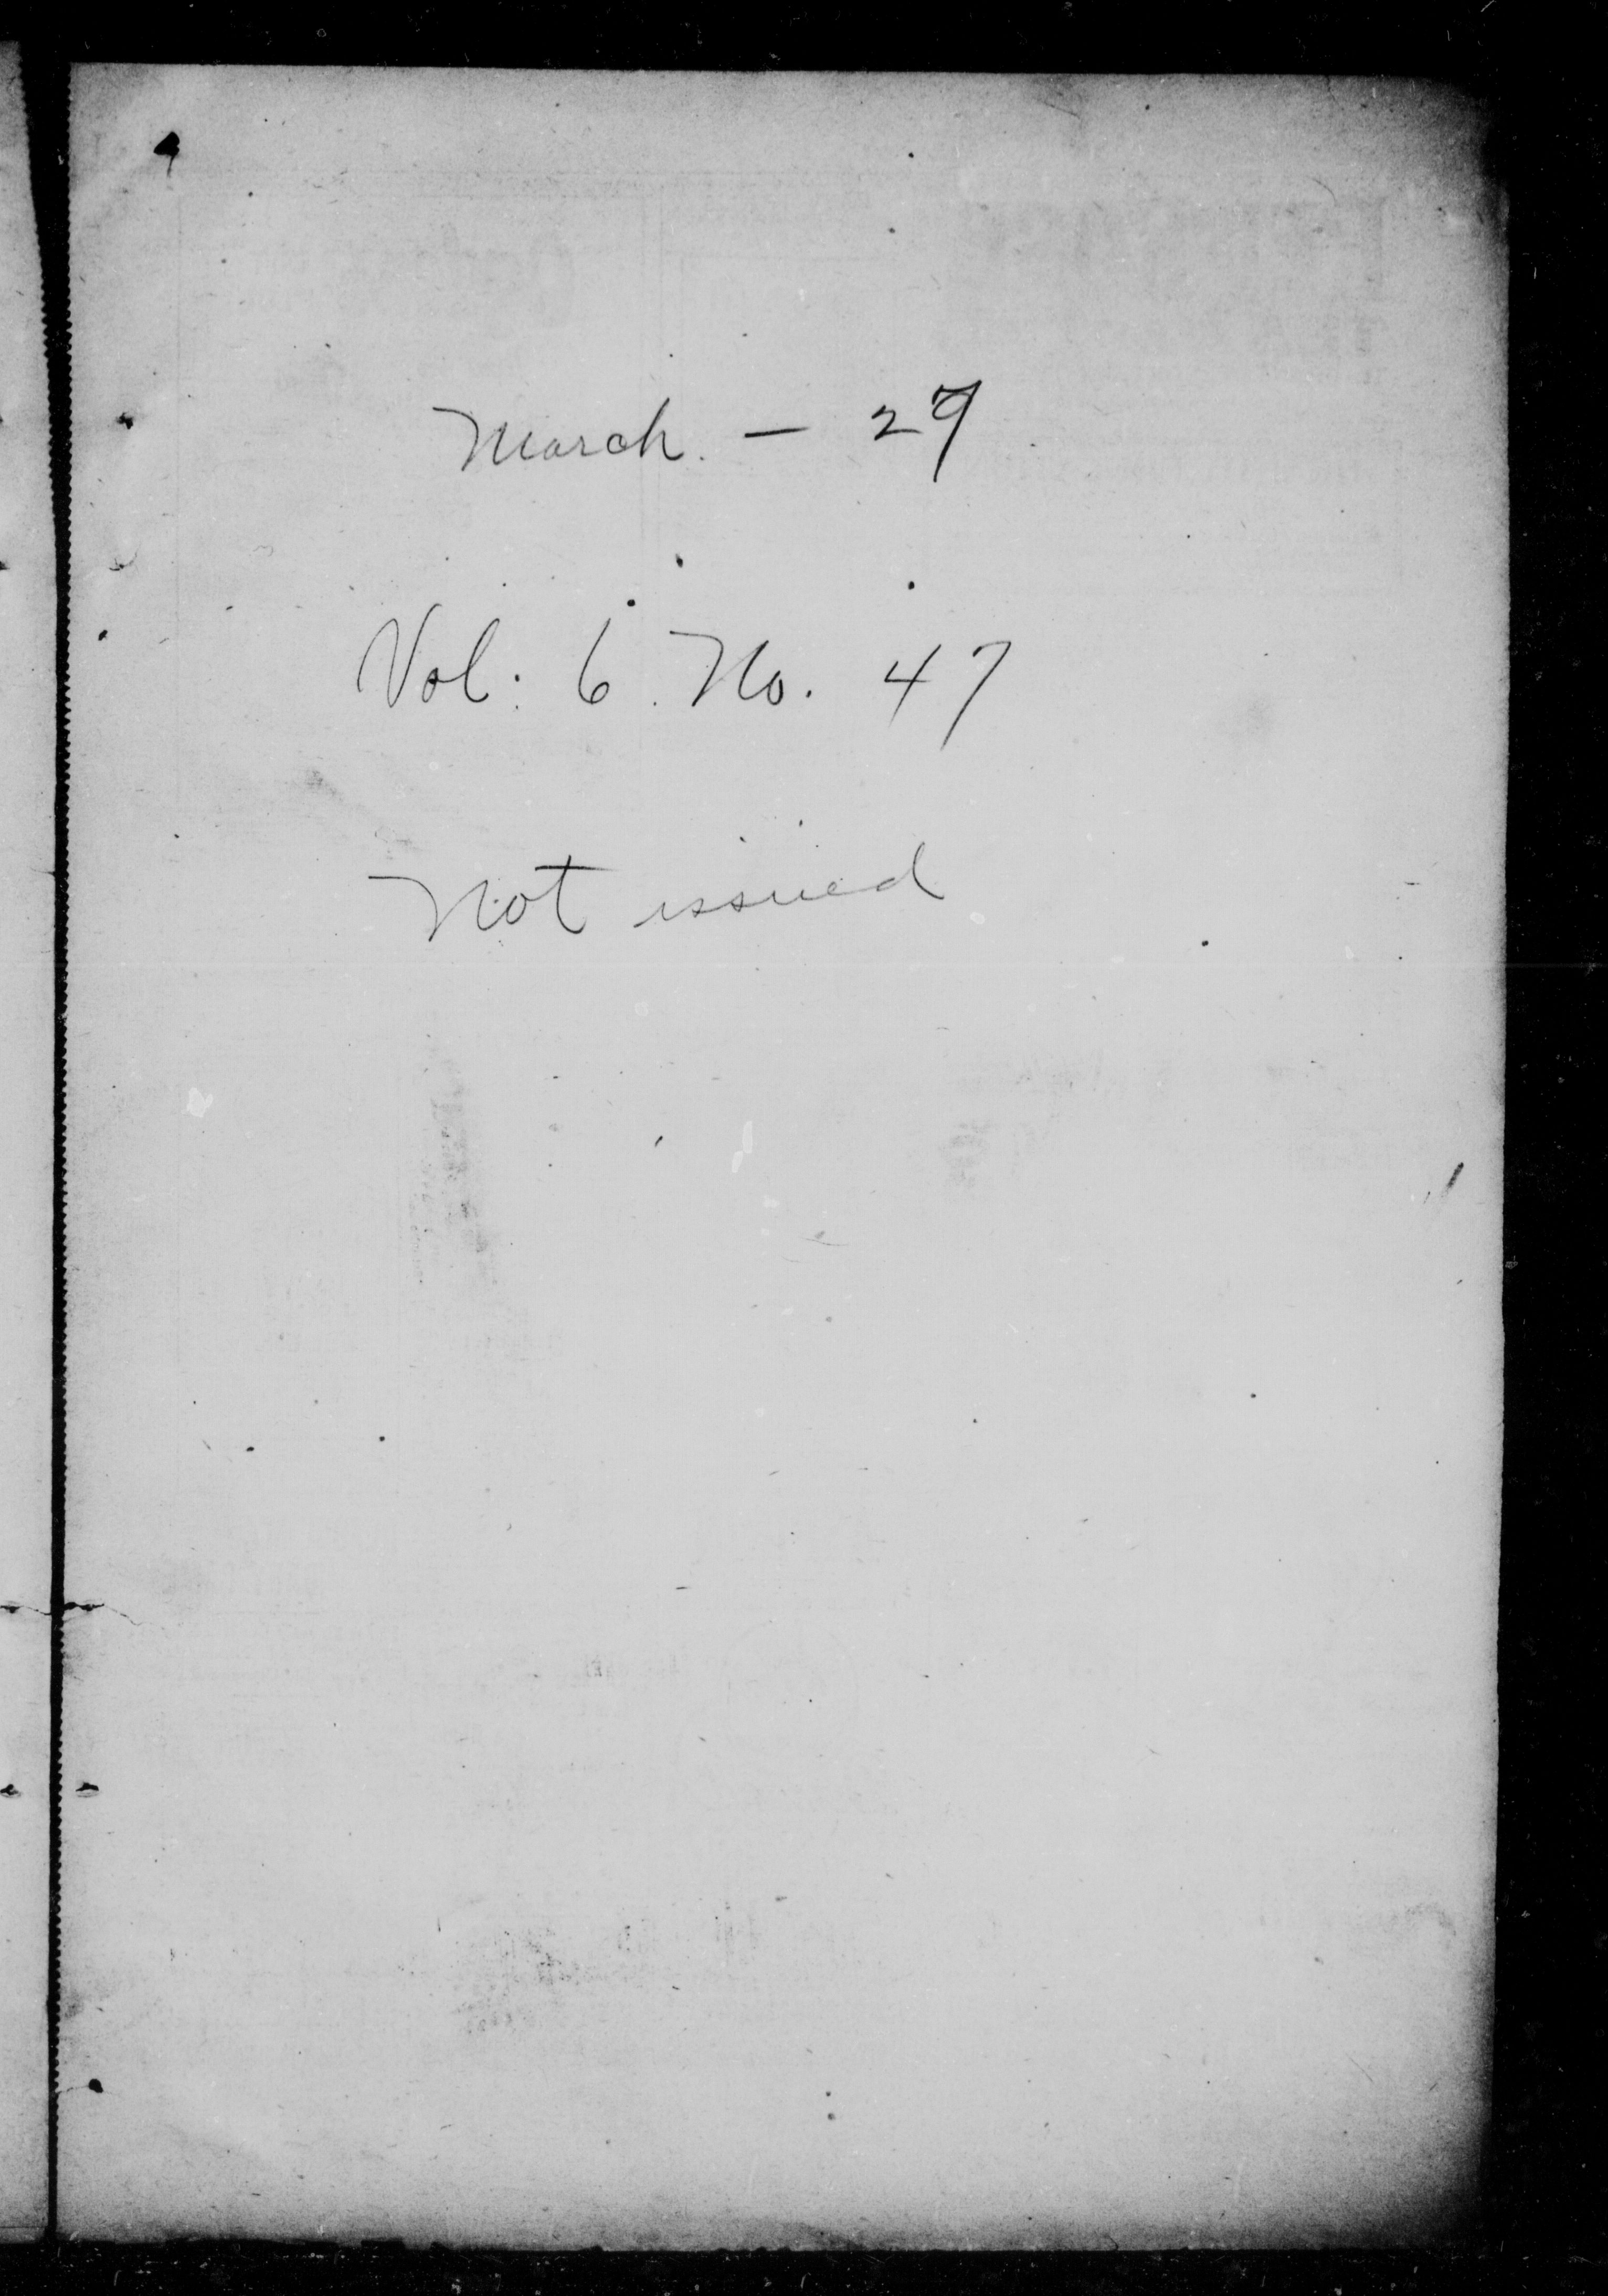 March. — 27
Vol. 6. No. 47
Not issued